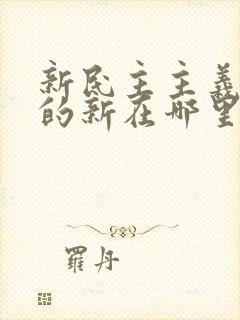 新民主主義
的新在哪里
羅丹